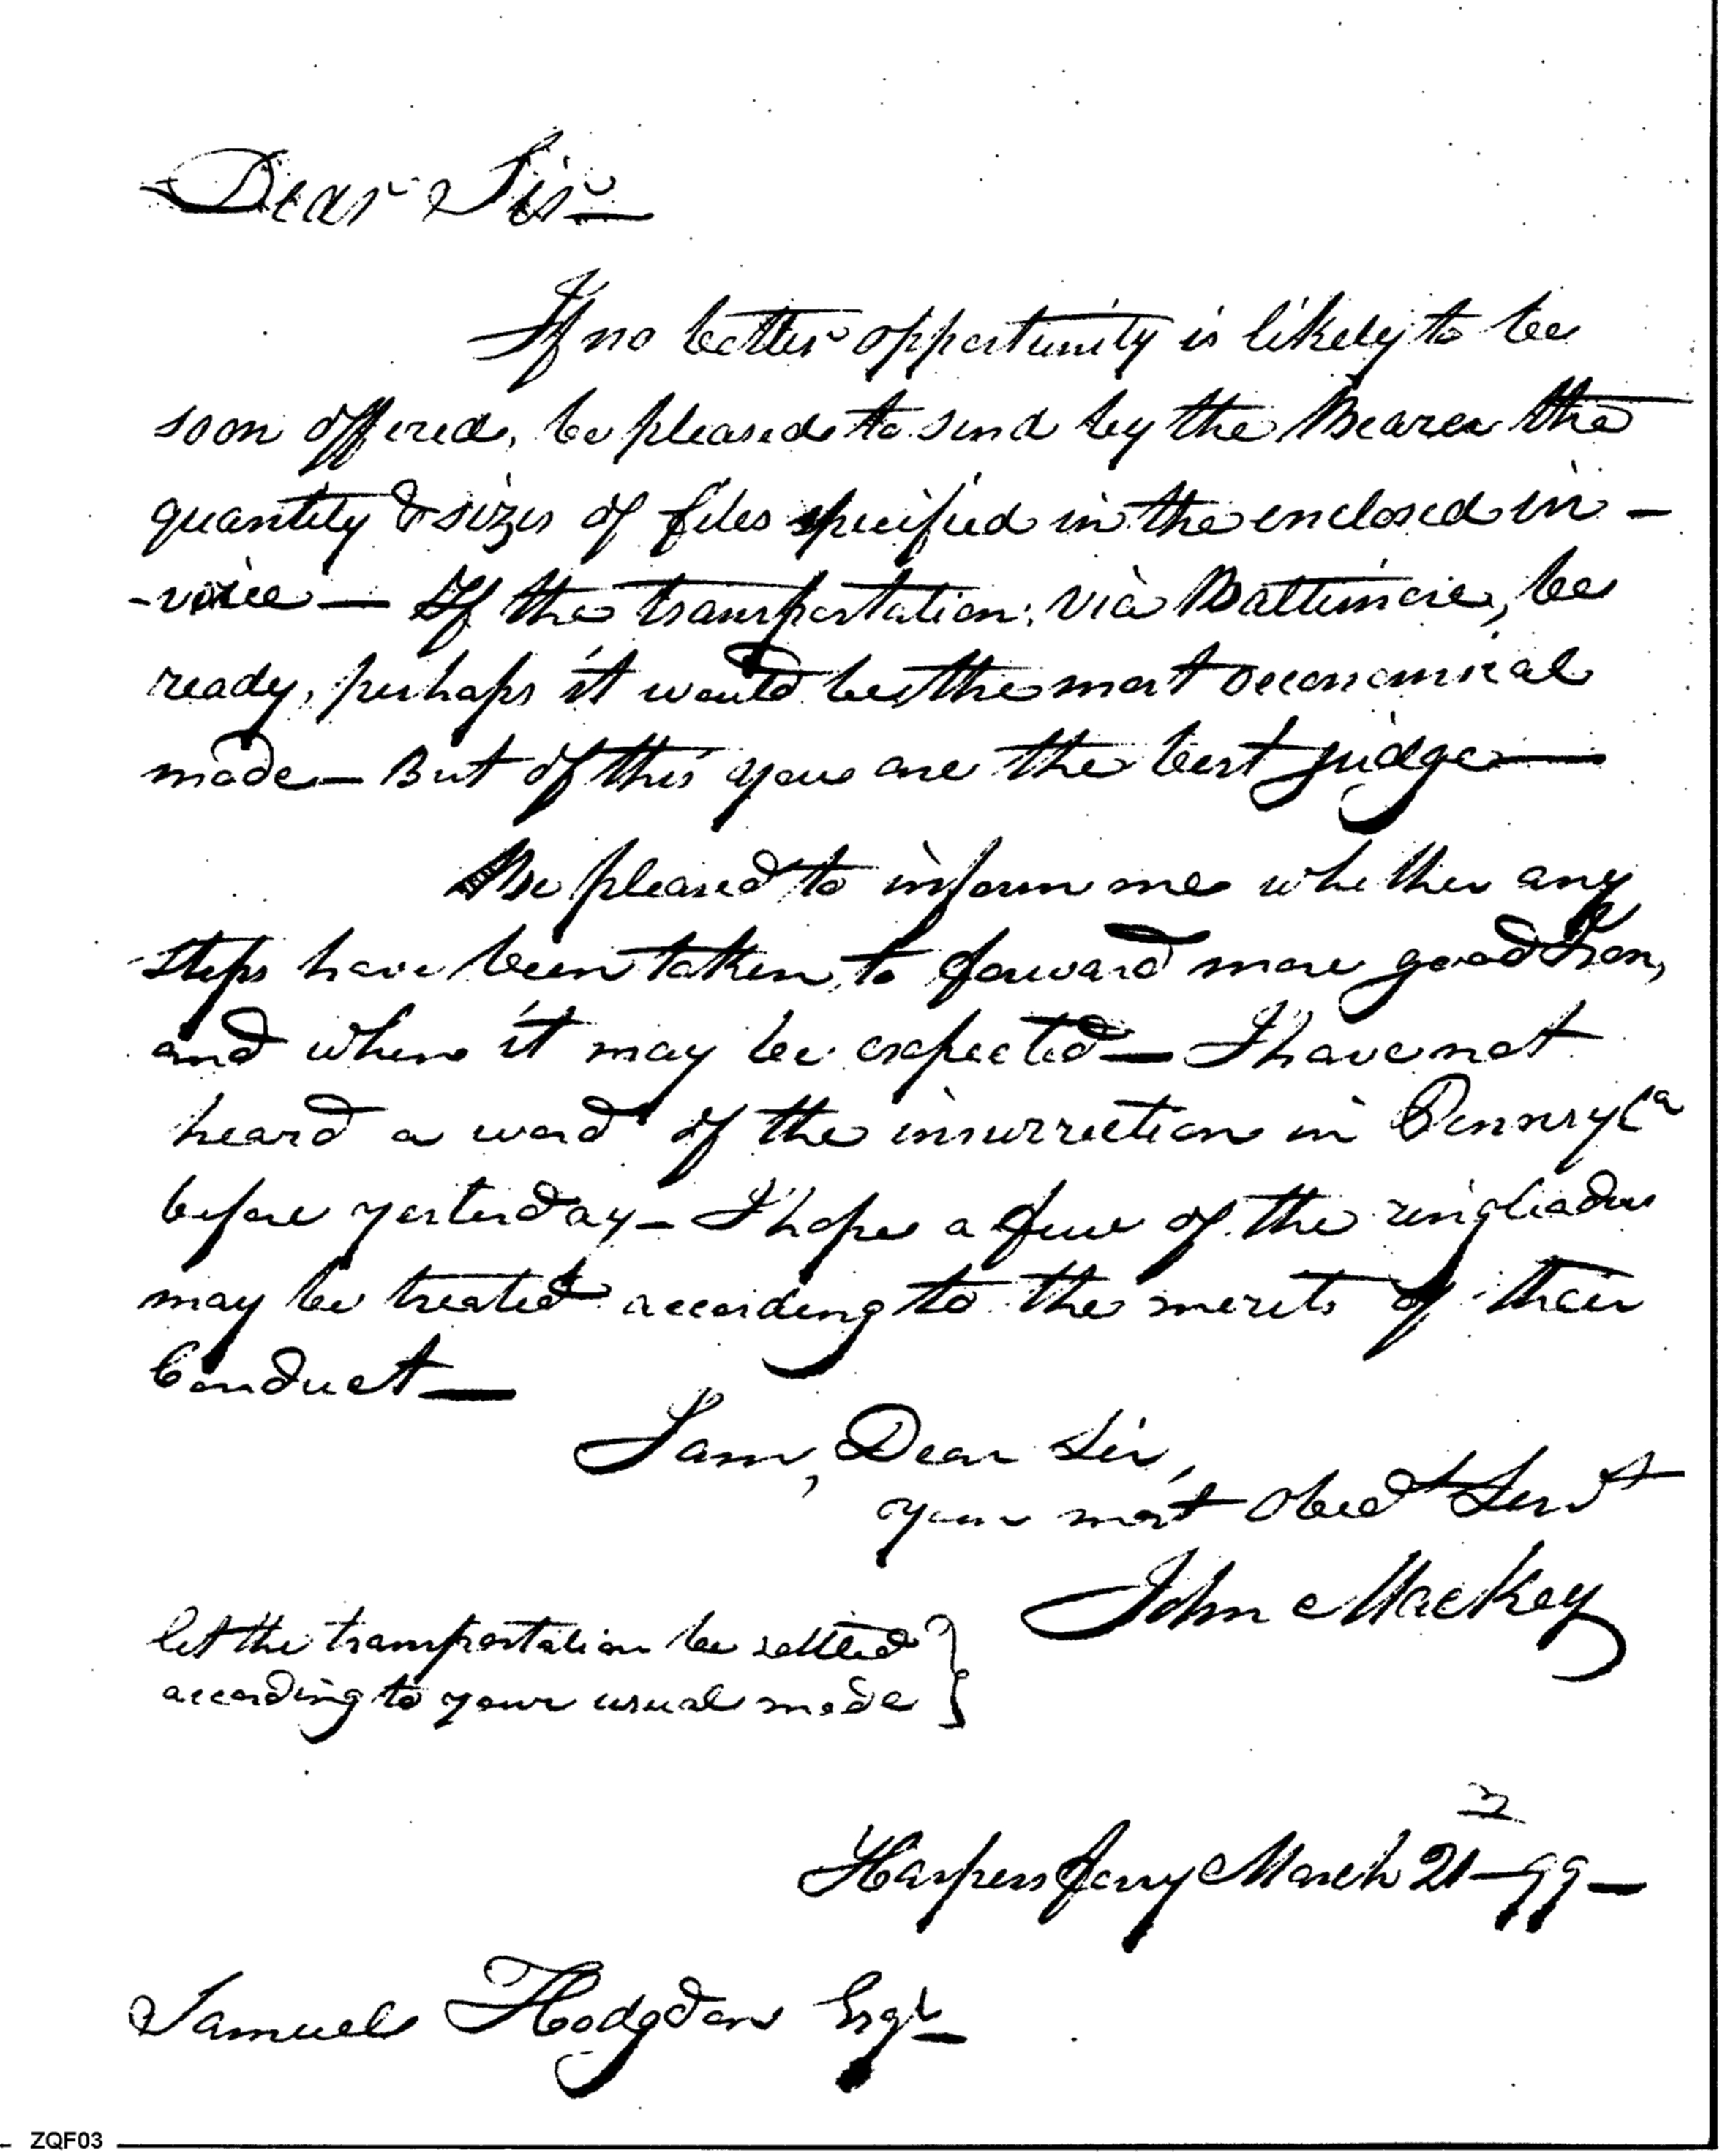 Dear Sir—
If no better opportunity is likely to be
soon offered, be pleased to send by the Bearer the
quantity & sizes of files specified in the enclosed in-
-voice — If the transportation, via Baltimore, be
ready, perhaps it would be the most oeconomical
mode — But of this you are the best judge —
Be pleased to inform me whether any
steps have been taken to forward more good Iron,
and when it may be expected — I have not
heard a word of the insurrection in Pennsyla
before yesterday — I hope a few of the ringleaders
may be treated according to the merits of their
Conduct —
I am, Dear Sir,
your most Obedt Servt
John Mackey
let the transportation be settled
according to your usual mode }
Harpers ferry March 21 – 99 —
Samuel Hodgdon Esqr
ZQF03